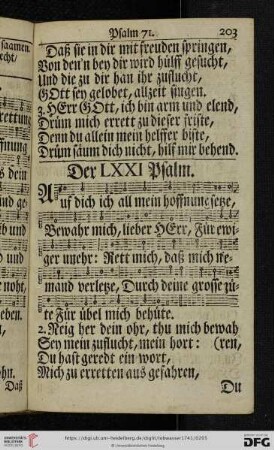 Psalm 71. 203
Daß sie in dir mit freuden springen,
Von den'n bey dir wird hülff gesucht,
Und die zu dir han ihr zuflucht,
GOtt sey gelobet, allzeit singen.
2. HErr GOtt, ich bin arm und elend,
Drüm mich errett zu dieser friste,
Denn du allein mein helffer biste,
Drüm säum dich nicht, hilf mir behend.
Der LXXI Psalm.
Auf dich ich all mein hoffnung setze,
Bewahr mich, lieber HErr, Für ewi-
ger unehr: Rett mich, daß mich nie-
mand verletze, Durch deine grosse gü-
te Für übel mich behüte.
2. Neig her dein ohr, thu mich bewah
Sey mein zuflucht, mein hort: (ren,
Du hast geredt ein wort,
Mich zu erretten aus gefahren,
Du
saamen
recht/
Daß
https://digi.ub.uni-heidelberg.de/diglit/lobwasser1741/0205
© Universitätsbibliothek Heidelberg
UNIVERSITÄTS-
BIBLIOTHEK
HEIDELBERG
Gefördert durch die
DFG